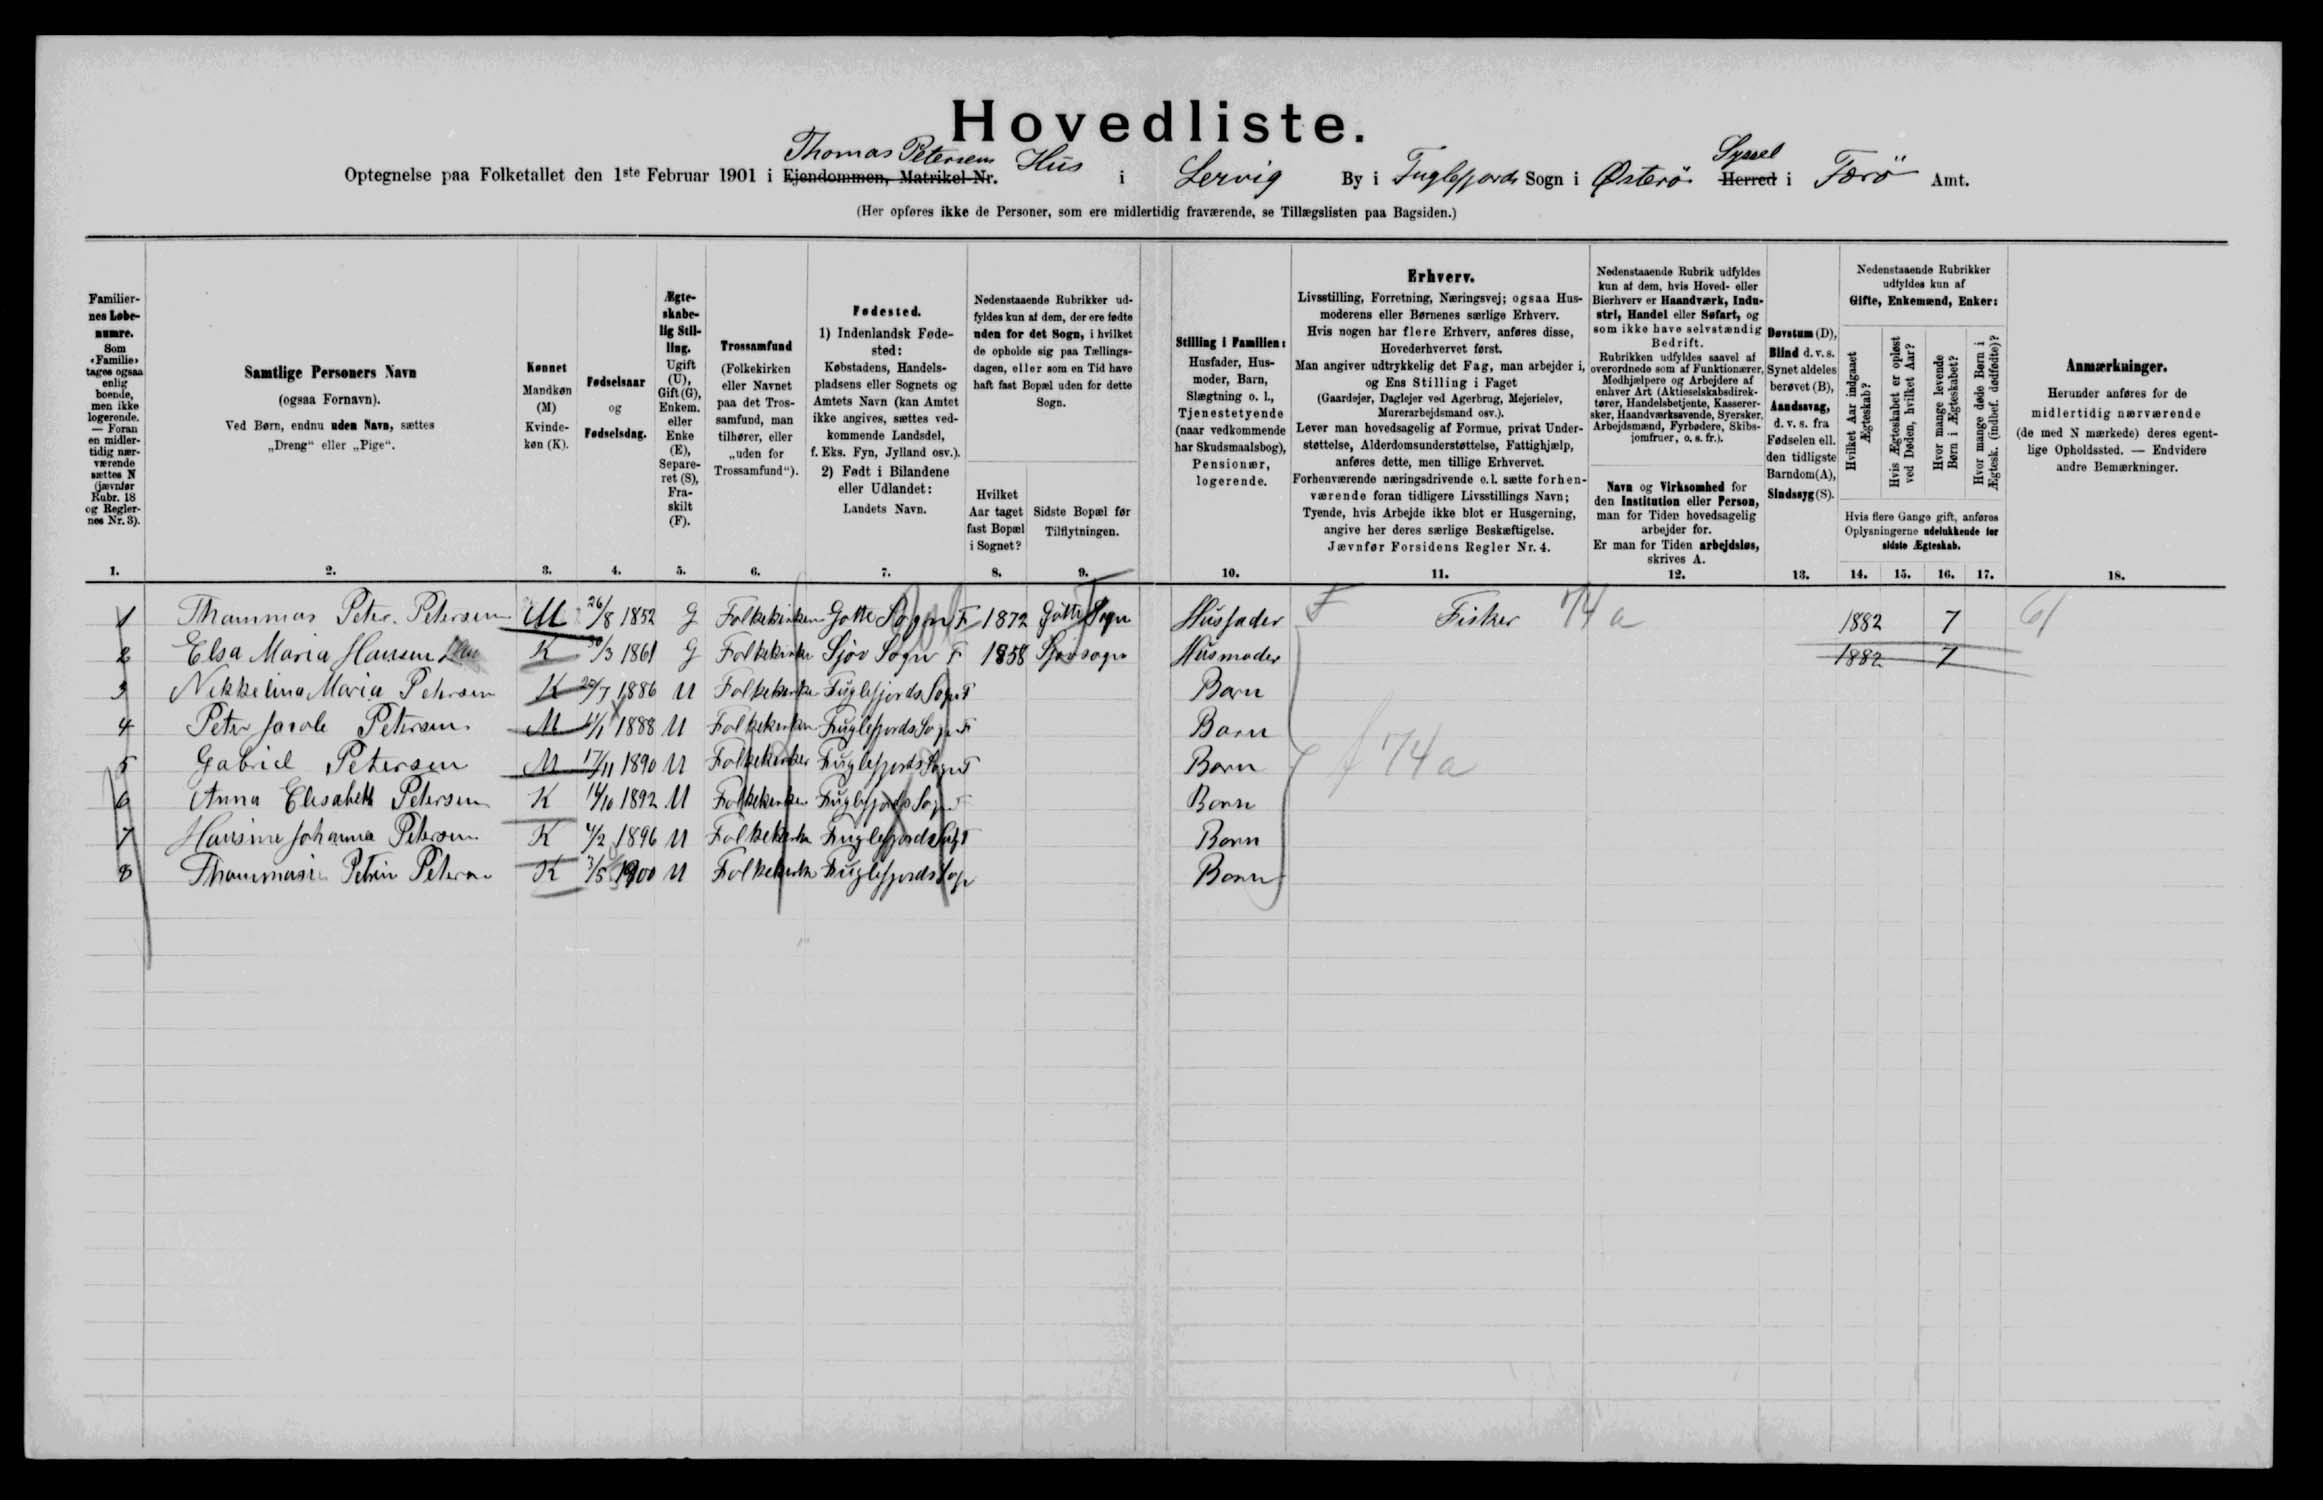 Hovedliste.
Thomas Petersens Hus Syssel
Optegnelse paa Folketallet den 1ste Februar 1901 i Ejendommen, Matrikel-Nr. i Lervig By i Fuglefjords Sogn i Østerø Herred i Færö Amt.
(Her opføres ikke de Personer, som ere midlertidig fraværende, se Tillægslisten paa Bagsiden.)
Familiernes Løbenumre.
Som «Familie» tages ogsaa enlig boende, men ikke logerende. — Foran en midlertidig nærværende sættes N (jævnfør Rubr. 18 og Reglernes Nr. 3).
Samtlige Personers Navn
(ogsaa Fornavn).
Ved Børn, endnu uden Navn, sættes
„Dreng“ eller „Pige“.
Kønnet
Mandkøn (M)
Kvindekøn (K).
Fødselsaar
og
Fødselsdag.
Ægteskabelig Stilling.
Ugift (U), Gift (G), Enkem. eller Enke (E), Separeret (S), Fraskilt (F).
Trossamfund
(Folkekirken eller Navnet paa det Trossamfund, man tilhører, eller „uden for Trossamfund“).
Fødested.
1) Indenlandsk Fødested:
Købstadens, Handelspladsens eller Sognets og Amtets Navn (kan Amtet ikke angives, sættes vedkommende Landsdel, f. Eks. Fyn, Jylland osv.).
2) Født i Bilandene eller Udlandet:
Landets Navn.
Nedenstaaende Rubrikker udfyldes kun af dem, der ere fødte uden for det Sogn, i hvilket de opholde sig paa Tællingsdagen, eller som en Tid have haft fast Bopæl uden for dette Sogn.
Hvilket Aar taget fast Bopæl i Sognet?
Sidste Bopæl før Tilflytningen.
Stilling i Familien:
Husfader, Husmoder, Barn, Slægtning o. l., Tjenestetyende (naar vedkommende har Skudsmaalsbog), Pensionær, logerende.
Erhverv.
Livsstilling, Forretning, Næringsvej; ogsaa Husmoderens eller Børnenes særlige Erhverv.
Hvis nogen har flere Erhverv, anføres disse, Hovederhvervet først.
Man angiver udtrykkelig det Fag, man arbejder i, og Ens Stilling i Faget
(Gaardejer, Daglejer ved Agerbrug, Mejerielev, Murerarbejdsmand osv.).
Lever man hovedsagelig af Formue, privat Understøttelse, Alderdomsunderstøttelse, Fattighjælp, anføres dette, men tillige Erhvervet.
Forhenværende næringsdrivende o. l. sætte forhenværende foran tidligere Livsstillings Navn;
Tyende, hvis Arbejde ikke blot er Husgerning, angive her deres særlige Beskæftigelse.
Jævnfør Forsidens Regler Nr. 4.
Nedenstaaende Rubrik udfyldes kun af dem, hvis Hoved- eller Bierhverv er Haandværk, Industri, Handel eller Søfart, og som ikke have selvstændig Bedrift.
Rubrikken udfyldes saavel af overordnede som af Funktionærer, Medhjælpere og Arbejdere af enhver Art (Aktieselskabsdirektører, Handelsbetjente, Kasserersker, Haandværkssvende, Syersker, Arbejdsmænd, Fyrbødere, Skibsjomfruer, o. s. fr.).
Navn og Virksomhed for den Institution eller Person, man for Tiden hovedsagelig arbejder for.
Er man for Tiden arbejdsløs, skrives A.
Døvstum (D), Blind d. v. s. Synet aldeles berøvet (B), Aandssvag, d. v. s. fra Fødselen ell. den tidligste Barndom (A), Sindssyg (S).
Nedenstaaende Rubrikker udfyldes kun af
Gifte, Enkemænd, Enker:
Hvilket Aar indgaaet Ægteskab?
Hvis Ægteskabet er opløst ved Døden, hvilket Aar?
Hvor mange levende Børn i Ægteskabet?
Hvor mange døde Børn i Ægtesk. (indbef. dødfødte)?
Hvis flere Gange gift, anføres Oplysningerne udelukkende for sidste Ægteskab.
Anmærkninger.
Herunder anføres for de midlertidig nærværende (de med N mærkede) deres egentlige Opholdssted. — Endvidere andre Bemærkninger.
1. 2. 3. 4. 5. 6. 7. 8. 9. 10. 11. 12. 13. 14. 15. 16. 17. 18.
1 Thammas Peter Petersen M 26/8 1852 G Folkekirken Gøtte Sogn F 1872 Gøtte Sogn Husfader F Fisker 74a 1882 7 61
2 Elsa Maria Hansen K 30/3 1861 G Folkekirke Sjov Sogn F 1858 Sjovsogn Husmoder 1882 7
3 Nikkelina Maria Petersen K 22/7 1886 U Folkekirke Fuglefjords Sogn F Barn
4 Peter Jacob Petersen M 21/1 1888 U Folkekirken Fuglefjords Sogn F Barn
5 Gabriel Petersen M 17/11 1890 U Folkekirken Fuglefjords Sogn F Barn f 74a
6 Anna Elisabeth Petersen K 14/10 1892 U Folkekirken Fuglefjords Sogn F Barn
7 Hansine Johanna Petersen K 4/2 1896 U Folkekirken Fuglefjords Sogn F Barn
8 Thammasia Petrin Petersen K 3/5 1900 U Folkekirken Fuglefjords Sogn Barn